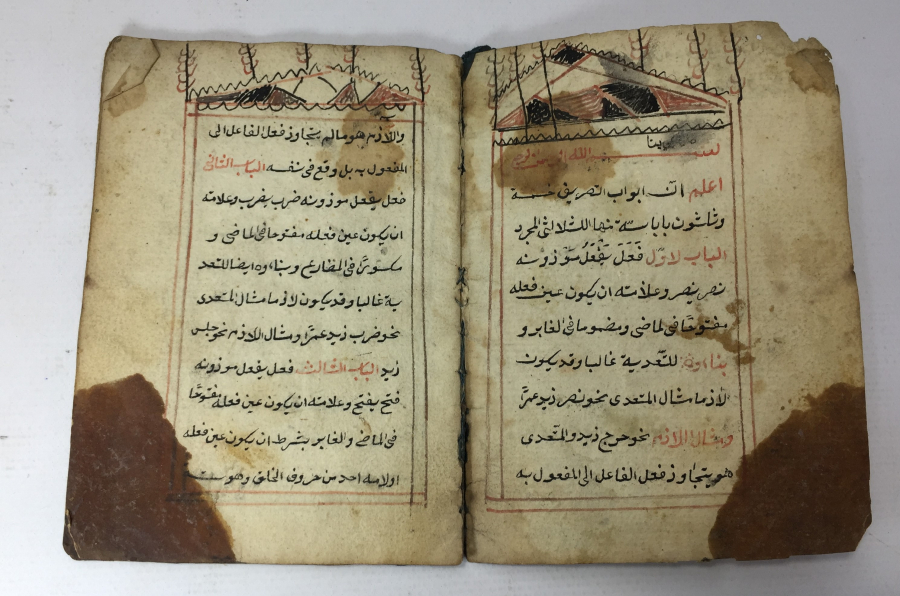 بسم الله الرحمن الرحيم
اعلم ان ابواب التصريف خمسة
وثلثون بابا ستة منها للثلاثي المجرد
الباب لاول فَعَلَ يَفْعَلُ موزونه
نصر ينصر وعلامته ان يكون عين فعله
مفتوحًا فى لماضى ومضموما فى الغابر و
بناءه للتعدية غالبا وقد يكون
لازما مثال المتعدى نحو نصر زيد عمرًا
ومثال اللازم نحو خرج زيد والمتعدى
هو يتجاوز فعل الفاعل الى المفعول به
واللازم هو مالم يتجاوز فعل الفاعل الى
المفعول به بل وقع فى نفسه الباب الثانى
فعل يفعل موزونه ضرب يضرب وعلامته
ان يكون عين فعله مفتوحا فى الماضى و
مكسورًا فى المضارع وبناءه ايضا للتعد
ية غالبا وقد يكون لازما مثال المتعدى
نحو ضرب زيد عمرًا ومثال اللازم نحو جلس
زيد الباب الثالث فعل يفعل موزونه
فتح يفتح وعلامته ان يكون عين فعله مفتوحًا
فى الماضى والغابر بشرط ان يكون عين فعله
اولامه احد من حروف الحلق وهو ستة